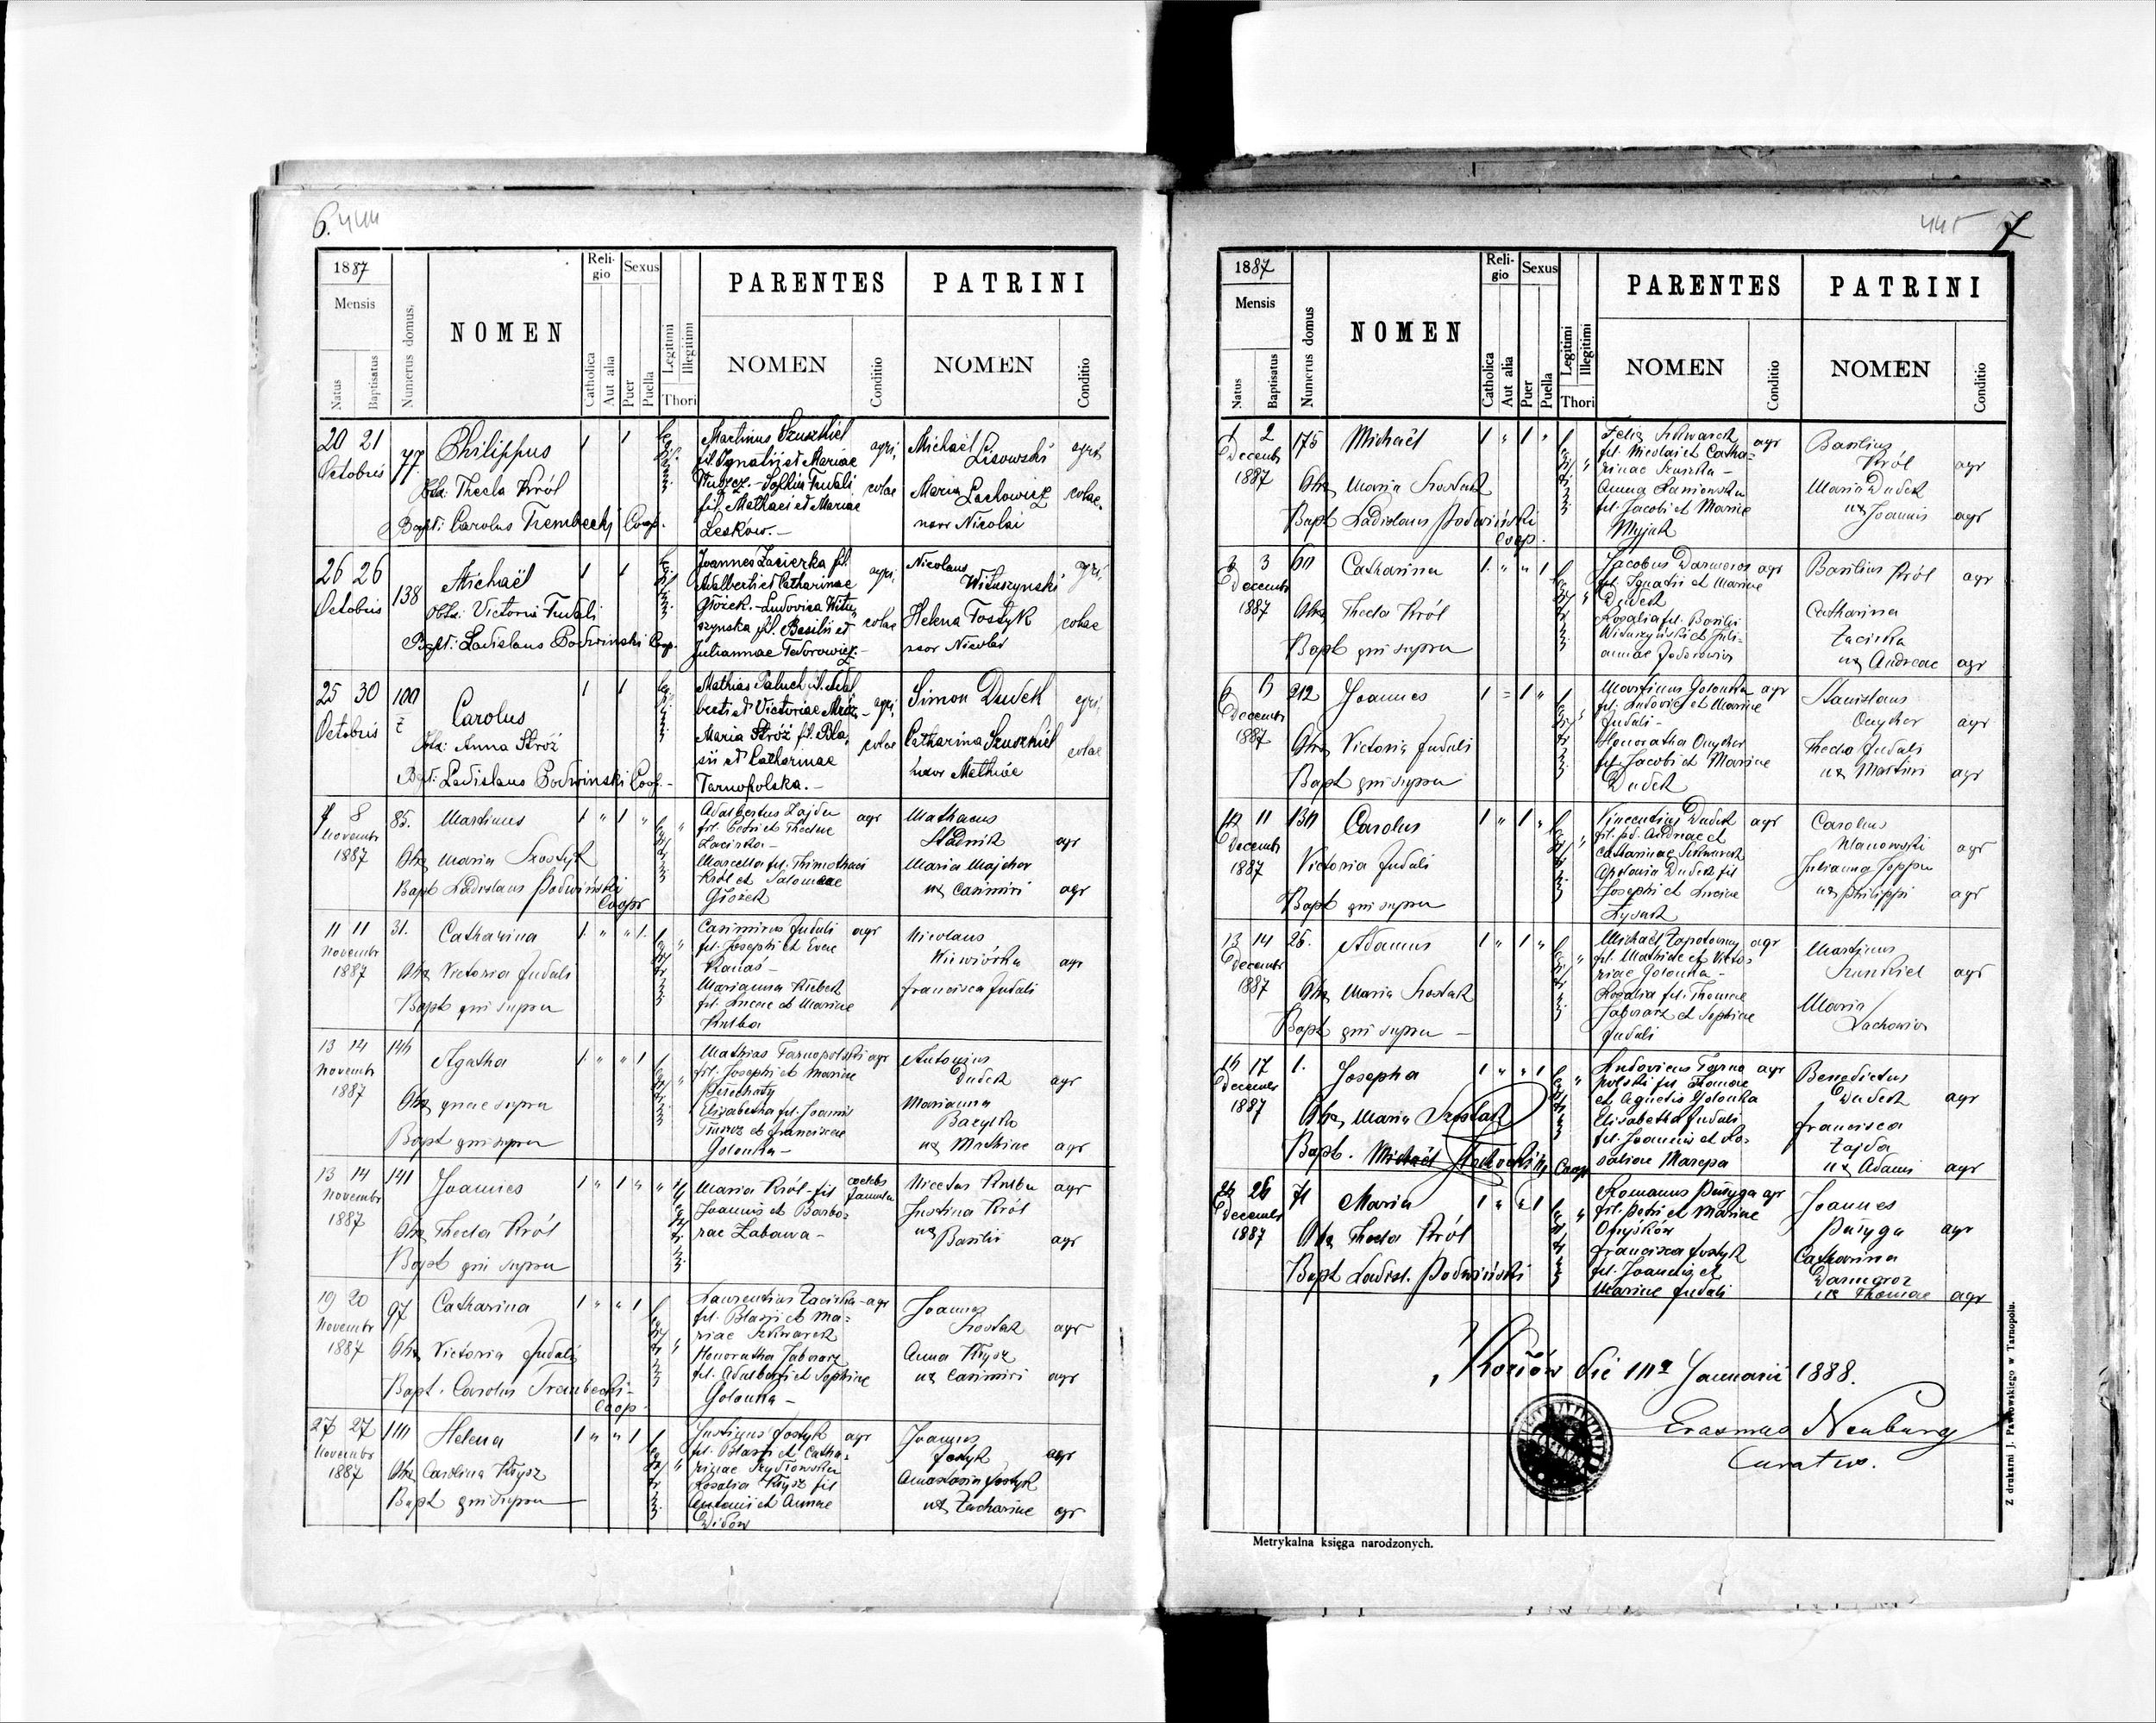 6. 444
1887
Mensis
Natus
Baptisatus
Numerus domus.
NOMEN
Religio
Catholica
Aut alia
Sexus
Puer
Puella
Legitimi
Illegitimi
Thori
PARENTES
NOMEN
Conditio
PATRINI
NOMEN
Conditio
20 21
Octobris
77.
Philippus
1 1
Obs: Thecla Król
Bapt: Carolus Trembecki Coop.
Martinus Szuszkiel
fil. Ignatii et Mariae
Sophia Fudali
fil. Mathaei et Mariae
Leśków.—
agri,
colae
Michaël Lisowski
Maria Lachowicz
uxor Nicolai
agri,
colae.
26 26
Octobris
138
Michaël
1 1
Obs: Victoria Fudali
Bapt: Ladislaus Podwinski Coop.
Joannes Zacierka fil.
Adalberti et Catharinae
Głożek.—Ludovica Witu
szynska fil. Basilii et
Juliannae Fedorowicz.—
agri,
colae
Nicolaus
Wituszynski
Helena Fostyk
uxor Nicolai
agri,
colae
25 30
Octobris
100
Carolus
1 1
Obs: Anna Stróż
Bapt: Ladislaus Podwinski Coop.—
Mathias Paluch fil. Adal
berti et Victoriae Mróz—
Maria Stróż fil. Bla
sii et Catharinae
Tarnopolska.—
agri,
colae
Simon Dudek
Catharina Szuszkiel
uxor Mathiae
agri,
colae
7 8
Novembr
1887
85.
Martinus
1 " 1 "
Obs Maria Szostak
Bapt Ladislaus Podwiński
Coopr
Adalbertus Zajda
fil. Petri et Theclae
Zacirka—
Marcella fil. Thimothaei
Król et Salomeae
Głożek
agr
Mathaeus
Stadnik
Maria Majcher
ux Casimiri
agr
agr
11 11
Novembr
1887
31.
Catharina
1 " " 1
Obs Victoria Fudali
Bapt qui supra
Casimirus Fudali
fil. Josephi et Evae
Kanaś—
Marianna Kubek
fil. Lucae et Mariae
Kulba
agr
Nicolaus
Wiewiórka
Francisca Fudali
agr
13 14
Novembr
1887
146
Agatha
1 " " 1
Obs quae supra
Bapt qui supra
Mathias Tarnopolski
fil. Josephi et Mariae
Elisabetha fil. Joannis
et Franciscae
Golonka—
agr
Antonius
Dudek
Marianna
Bazylko
ux Mathiae
agr
agr
13 14
Novembr
1887
141
Joannes
1 " 1 "
Obs Thecla Król
Bapt qui supra
Maria Król fil
Joannis et Barba=
rae Zabawa—
coelebs
famula
Nicetas Kulba
Justina Król
ux Basilii
agr
agr
19 20
Novembr
1887
97
Catharina
1 " " 1
Obs Victoria Fudali
Bapt. Carolus Trembecki—
Coop.
Laurentius Zacirka
fil. Blasii et Ma=
riae Szkwarek
Honoratha Jaworz
fil. Adalberti et Sophiae
Golonka—
agr
Joannes
Szostak
Anna Kłysz
ux Casimiri
agr
agr
27 27
Novembr
1887
Helena
1 " " 1
Obs Carolina Kłysz
Bapt qui supra
Justinus Fostyk
fil. Blasii et Catha=
rinae Szydłowska
Rosalia Kłysz fil
Antonii et Annae
Widow
agr
Joannes
Fostyk
Anastasia Fostyk
ux Zachariae
agr
agr
445 7
1887
Mensis
Natus
Baptisatus
Numerus domus
NOMEN
Religio
Catholica
Aut alia
Sexus
Puer
Puella
Legitimi
Illegitimi
Thori
PARENTES
NOMEN
Conditio
PATRINI
NOMEN
Conditio
1 2
Decemb
1887
175
Michaël
1 " 1 "
Obs Maria Szostak
Bapt Ladislaus Podwiński
Coop.
Felix Szkwarek
fil. Nicolai et Catha=
rinae Szuszka—
Anna Kamionska
fil. Jacobi et Mariae
Myjak
agr
Basilius
Król
Maria Dudek
ux Joannis
agr
agr
3 3
Decembr
1887
60
Catharina
1 " " 1
Obs Thecla Król
Bapt qui supra
Jacobus Darmoros
fil. Ignatii et Mariae
Dudek
Rosalia fil. Basilii
Wituszyński et Juli=
annae Fedorowicz
agr
Basilius Król
Catharina
Zacirka
ux Andreae
agr
agr
6 6
Decembr
1887
212
Joannes
1 = 1 "
Obs Victoria Fudali
Bapt qui supra
Martinus Golonka
fil. Ludovici et Mariae
Fudali—
Honoratha Onyher
fil. Jacobi et Mariae
Dudek
agr
Stanislaus
Onyher
Thecla Fudali
ux Martini
agr
agr
10 11
Decembr
1887
130
Carolus
1 " 1 "
Victoria Fudali
Bapt qui supra
Vincentius Dudek
fil. Andreae et
Catharinae Szkwarek
Apolonia Dudek fil
Josephi et Luciae
Łysak
agr
Carolus
Ulanowski
Julianna Joppa
ux Philippi
agr
agr
13 14
Decembr
1887
26.
Adamus
1 " 1 "
Obs Maria Szostak
Bapt qui supra —
Michaël Zapotoczny
fil. Mathiae et Victo=
riae Golonka—
Rosalia fil. Thomae
Jaworz et Sophiae
Fudali
agr
Martinus
Szuszkiel
Maria
Lachowicz
agr
16 17
Decembr
1887
1.
Josepha
1 " " 1
Obs Maria Szostak
Bapt. Michaël Coop
Ludovicus Tarno
polski fil. Thomae
et Agnetis Golonka
Elisabetha Fudali
fil. Joannis et Ro=
saliae Marepa
agr
Benedictus
Dudek
Francisca
Zajda
ux Adami
agr
agr
26 26
Decembr
1887
71
Maria
1 " " 1
Obs Thecla Król
Bapt Ladisl. Podwiński
Romanus Pużyga
fil. Petri et Mariae
Onyśków
Francisca Fostyk
fil. Joannis et
Mariae Fudali
agr
Joannes
Pużyga
Catharina
Darmoroz
ux Thomae
agr
agr
die Januarii 1888.
Erasmus Neuburg
Curatus.
Z drukarni J. Pawłowskiego w Tarnopolu.
Metrykalna księga narodzonych.